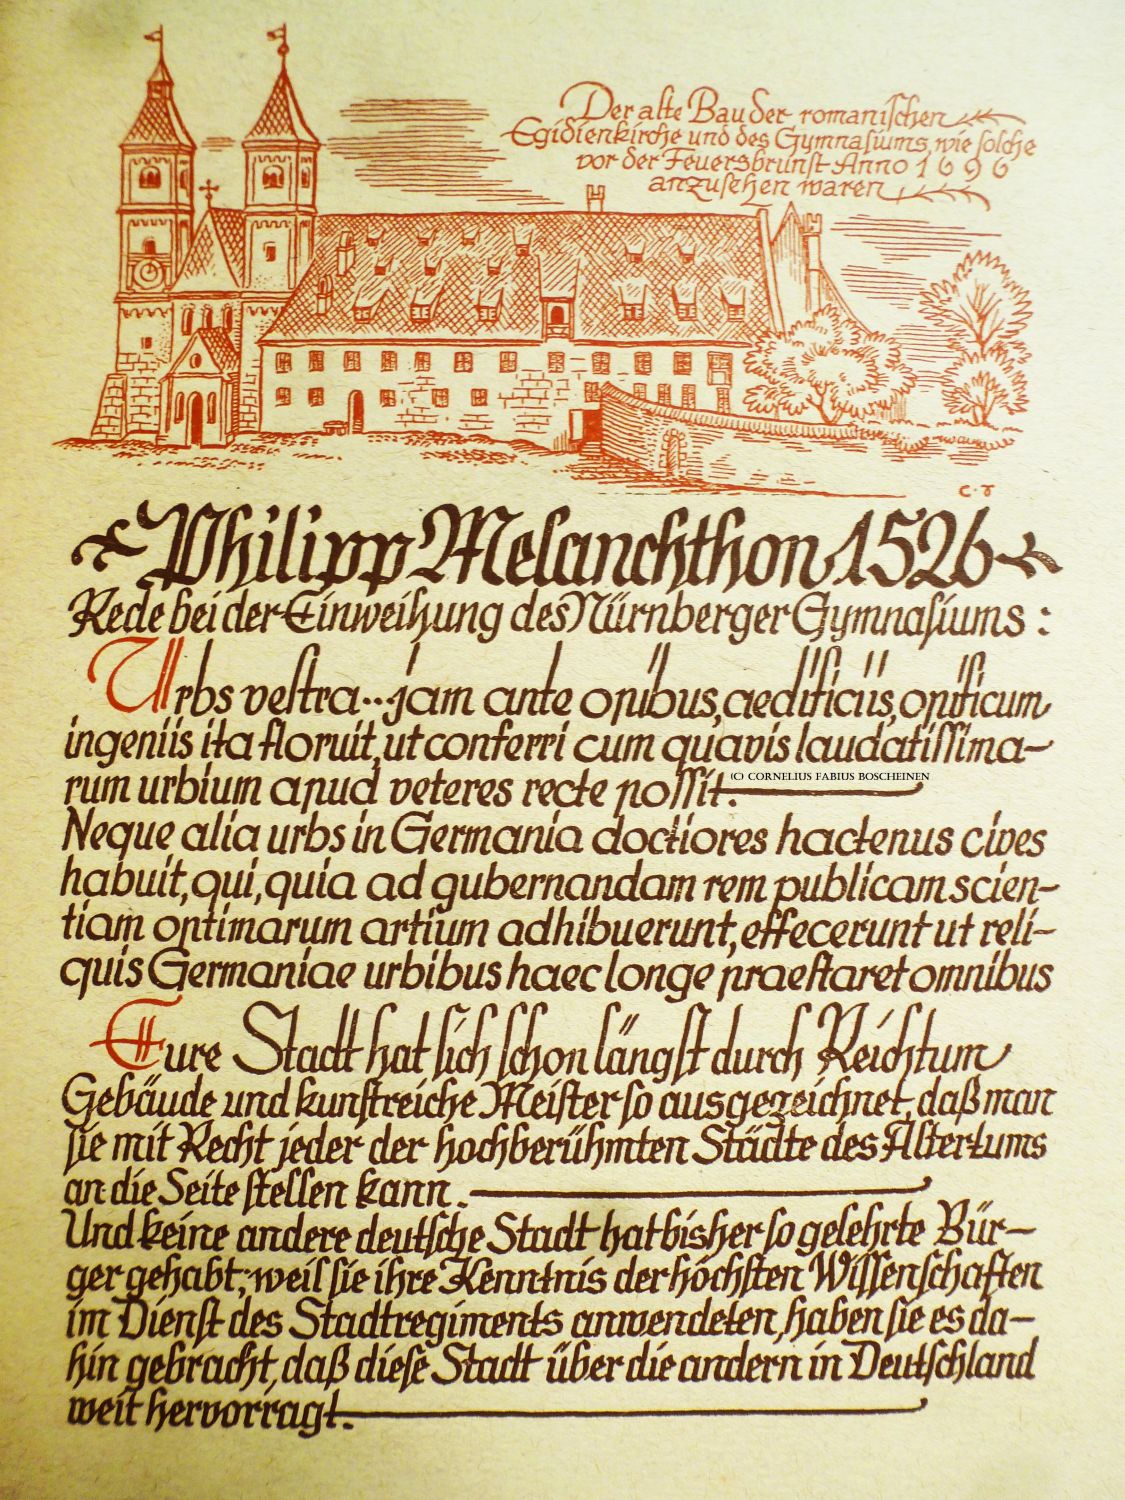 Der alte Bau der romanischen
Egidienkirche und des Gymnasiums, wie solche
vor der Feuersbrunst Anno 1696
anzusehen waren
C. T
Philipp Melanchthon 1526
Rede bei der Einweihung des Nürnberger Gymnasiums :
Urbs vestra.. jam ante opibus, aedificiis, opificum
ingeniis ita floruit, ut conferri cum quavis laudatissima-
rum urbium apud veteres recte possit.
(C) CORNELIUS FABIUS BOSCHEINEN
Neque alia urbs in Germania doctiores hactenus cives
habuit, qui, quia ad gubernandam rem publicam scien-
tiam optimarum artium adhibuerunt, effecerunt ut reli-
quis Germaniae urbibus haec longe praestaret omnibus
Eure Stadt hat sich schon längst durch Reichtum
Gebäude und kunstreiche Meister so ausgezeichnet, daß man
sie mit Recht jeder der hochberühmten Städte des Altertums
an die Seite stellen kann.
Und keine andere deutsche Stadt hat bisher so gelehrte Bür-
ger gehabt; weil sie ihre Kenntnis der höchsten Wissenschaften
im Dienst des Stadtregiments anwendeten, haben sie es da-
hin gebracht, daß diese Stadt über die andern in Deutschland
weit hervorragt.